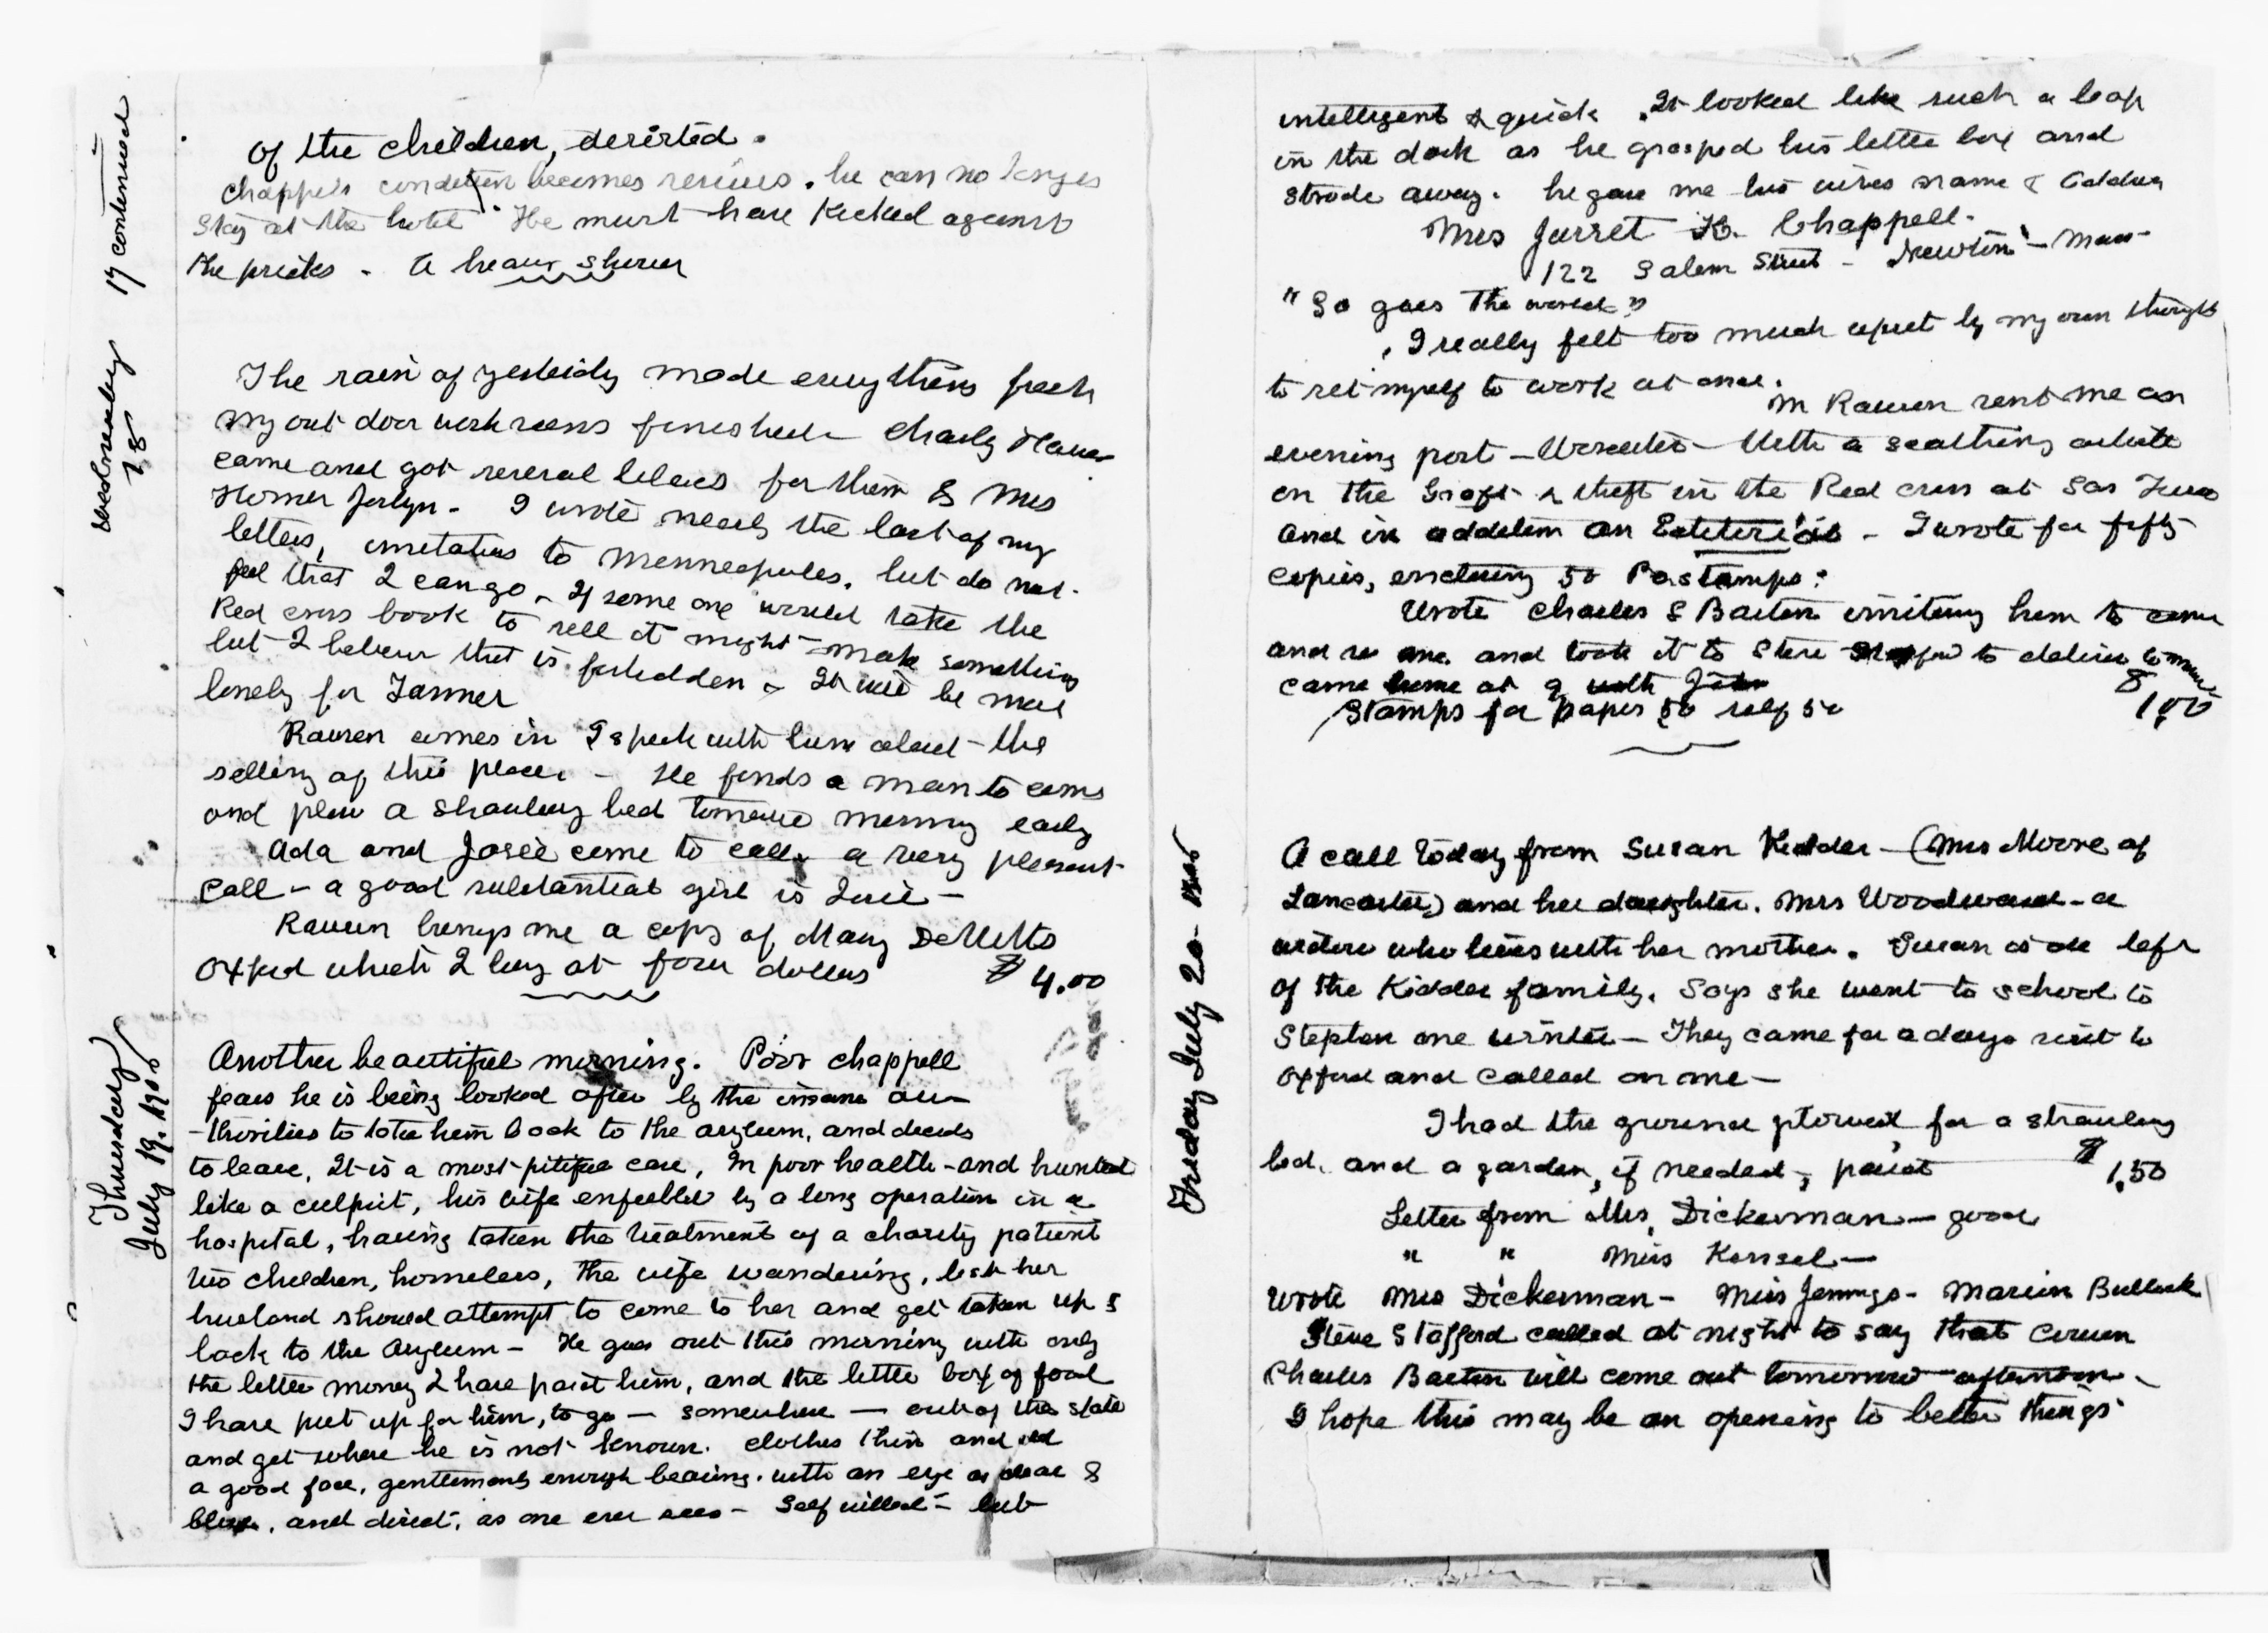 17 continued
of the children, deserted.
Chappels condition becomes serious. he can no longer
stay at the hotel. He must have kicked against
the pricks. A heavy shower
Wednesday
18
The rain of yesterday made everything fresh
my out door work seems finished - Charly
came and got several lilacs for them & Mrs
Homer Joslyn. I wrote nearly the last of my
letters, invitations to Minneapolis. but do not
feel that I can go. If some one would take the
Red cross book to sell it might make something
but I believe that is forbidden. It will be most
lonely for Tanner
Rawen comes in I speak with him about the
selling of this place. - He finds a man to come
and plow a strawberry bed tomorrow morning early
Ada and Josie come to call. a very pleasant
call - a good substantial girl is Josie -
Rawen brings me a copy of Mary DeWitts
Oxford which I buy at four dollars $4.00
Thursday
July 19. 1906
Another beautiful morning. Poor chappell
fears he is being looked after by the insane au-
-thorities to take him back to the asylum, and decides
to leave. It is a most pitiful case, In poor health - and hunted
like a culprit, his wife enfeebled by a long operation in a
hospital, having taken the treatment of a charity patient
two children, homeless, the wife wandering, lest her
husband should attempt to come to her and get taken up &
back to the asylum - He goes out this morning with only
the little money I have paid him, and the little box of food
I have put up for him, to go - somewhere - out of the state
and get where he is not known. clothes thin and old
a good face, gentlemanly enough bearing. with an eye as clear &
blue, and direct, as one ever sees - Self willed - but
intelligent & quick. It looked like such a leap
in the dark as he grasped his little box and
strode away. he gave me his wifes name & address
Mrs Jarret K. Chappell.
122 Salem Street - Newton - Mass -
"So goes the world"
I really felt too much upset by my own thoughts
to set myself to work at once.
Mr Rawen sent me an
evening post - Worcester - With a scathing article
on the Graft & theft in the Red cross at San
and in addition an Editorial - I wrote for fifty
copies, enclosing 50 Postamps:
Wrote Charles S Barton inviting him to come
and see me. and took it to Steve to deliver
came home at 9 with
Stamps for papers 50 self 50 $1.00
Friday July 20 - 1906
A call today from Susan Kidder - (Mrs Moore of
Lancaster) and her daughter. Mrs Woodward - a
widow who lives with her mother. Susan is all left
of the Kidder family. Says she went to school to
Stephen one winter - They came for a days visit to
Oxford and called on me -
I had the ground plowed, for a strawberry
bed. and a garden, if needed, paid $1.50
Letter from Mrs. Dickerman - good
" " Miss Kensel -
Wrote Mrs Dickerman - Miss Jennings - Marion Bullock
Steve Stafford called at night to say that
Charles Barton will come out tomorrow afternoon -
I hope this may be an opening to better things